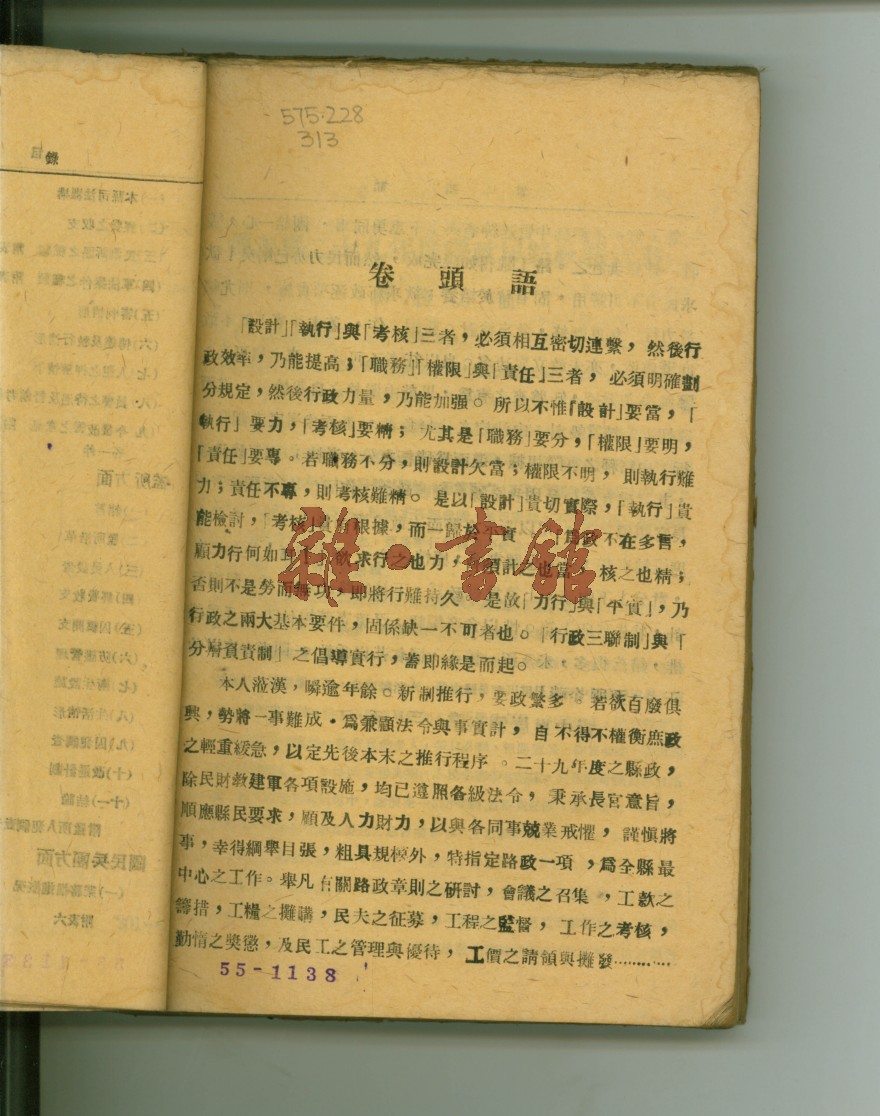 575.228
313
卷頭語
「設計」「執行」與「考核」三者，必須相互密切連繫，然後行
政效率，乃能提高；「職務」「權限」與「責任」三者，必須明確劃
分規定，然後行政力量，乃能加强。所以不惟「設計」要當，「
執行」要力，「考核」要精；尤其是「職務」要分，「權限」要明，
「責任」要專。若職務不分，則設計欠當；權限不明，則執行難
力；責任不專，則考核難精。是以「設計」貴切實際，「執行」貴
能檢討，「考核」貴有根據，而一歸於平實。「為政不在多言，
願力行何如耳」欲求行之也力，必須計之也當，核之也精；
否則不是勞而無功，即將行難持久。是故「力行」與「平實」，乃
行政之兩大基本要件，固係缺一不可者也。「行政三聯制」與「
分層負責制」之倡導實行，蓋即緣是而起。
本人涖漢，瞬逾年餘。新制推行，要政繁多。若欲百廢俱
興，勢將一事難成・爲兼顧法令與事實計，自不得不權衡庶政
之輕重緩急，以定先後本末之推行程序。二十九年度之縣政，
除民財教建軍各項設施，均已遵照各級法令，秉承長官意旨，
順應縣民要求，顧及人力財力，以與各同事兢業戒懼，謹愼將
事，幸得綱舉目張，粗具規模外，特指定路政一項，爲全縣最
中心之工作。舉凡有關路政章則之研討，會議之召集，工款之
籌措，工糧之攤購，民夫之征募，工程之監督，工作之考核，
勤惰之獎懲，及民工之管理與優待，工價之請領與攤發…………
55-1138
雜·書館